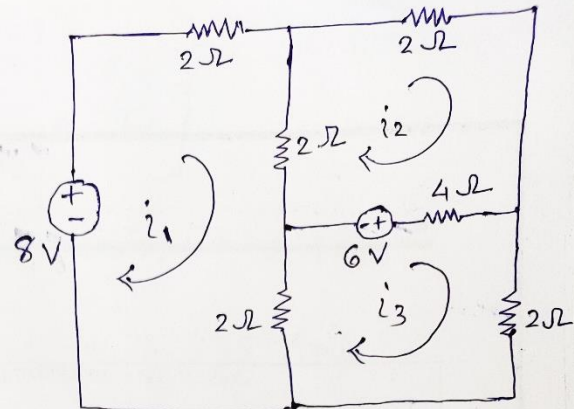 2Ω
2Ω
2Ω
i2
4Ω
+
-
8V
i1
- +
6V
2Ω
i3
2Ω